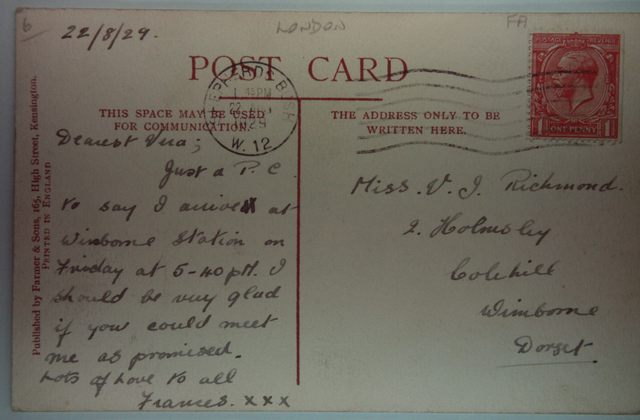 6
22/8/29.
LONDON
FA
POST CARD
SHEPHERDS BUSH
22 AUG
1929
W.12
ONE PENNY
THIS SPACE MAY BE USED
FOR COMMUNICATION.
THE ADDRESS ONLY TO BE
WRITTEN HERE.
Dearest Vera;
Just a P.C.
to say I arrive at
Wimborne Station on
Friday at 5-40 pm. I
should be very glad
if you could meet
me as promised.
Lots of love to all
Frances. x x x
Miss. V. J. Richmond.
2. Holmsley
Colehill
Wimborne
Dorset
Published by Farmer & Sons, 165, High Street, Kensington.
PRINTED IN ENGLAND